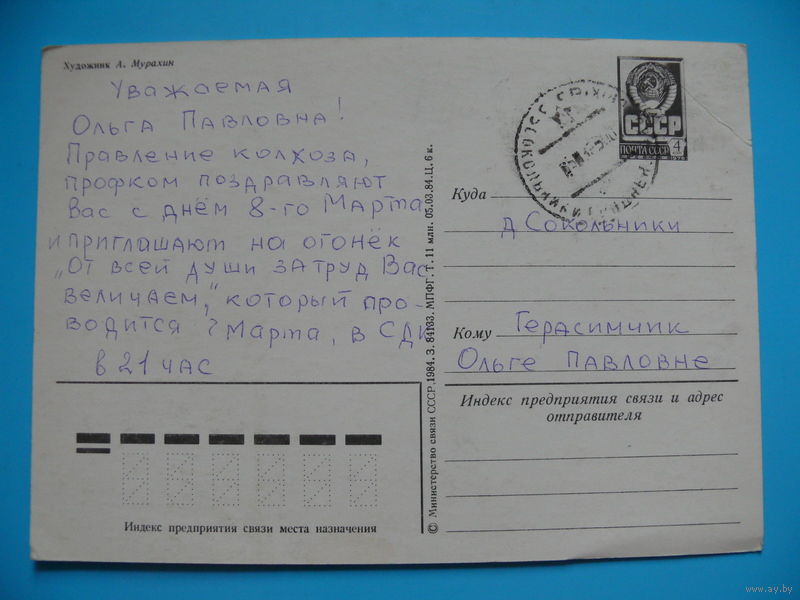 Художник А. Мурахин
Уважаемая
Ольга Павловна!
Правление колхоза,
профком поздравляют
Вас с днём 8-го Марта
и приглашают на огонёк
„От всей души за труд Вас
величаем," который про-
водится 7 Марта, в СДК
в 21 час
Индекс предприятия связи места назначения
© Министерство связи СССР, 1984. З. 84133. МПФГ. Т. 11 млн. 05.03.84. Ц. 6 к.
СССР
ПОЧТА СССР 4
1976
Куда
д Сокольники
Кому Герасимчик
Ольге Павловне
Индекс предприятия связи и адрес
отправителя
www.ay.by